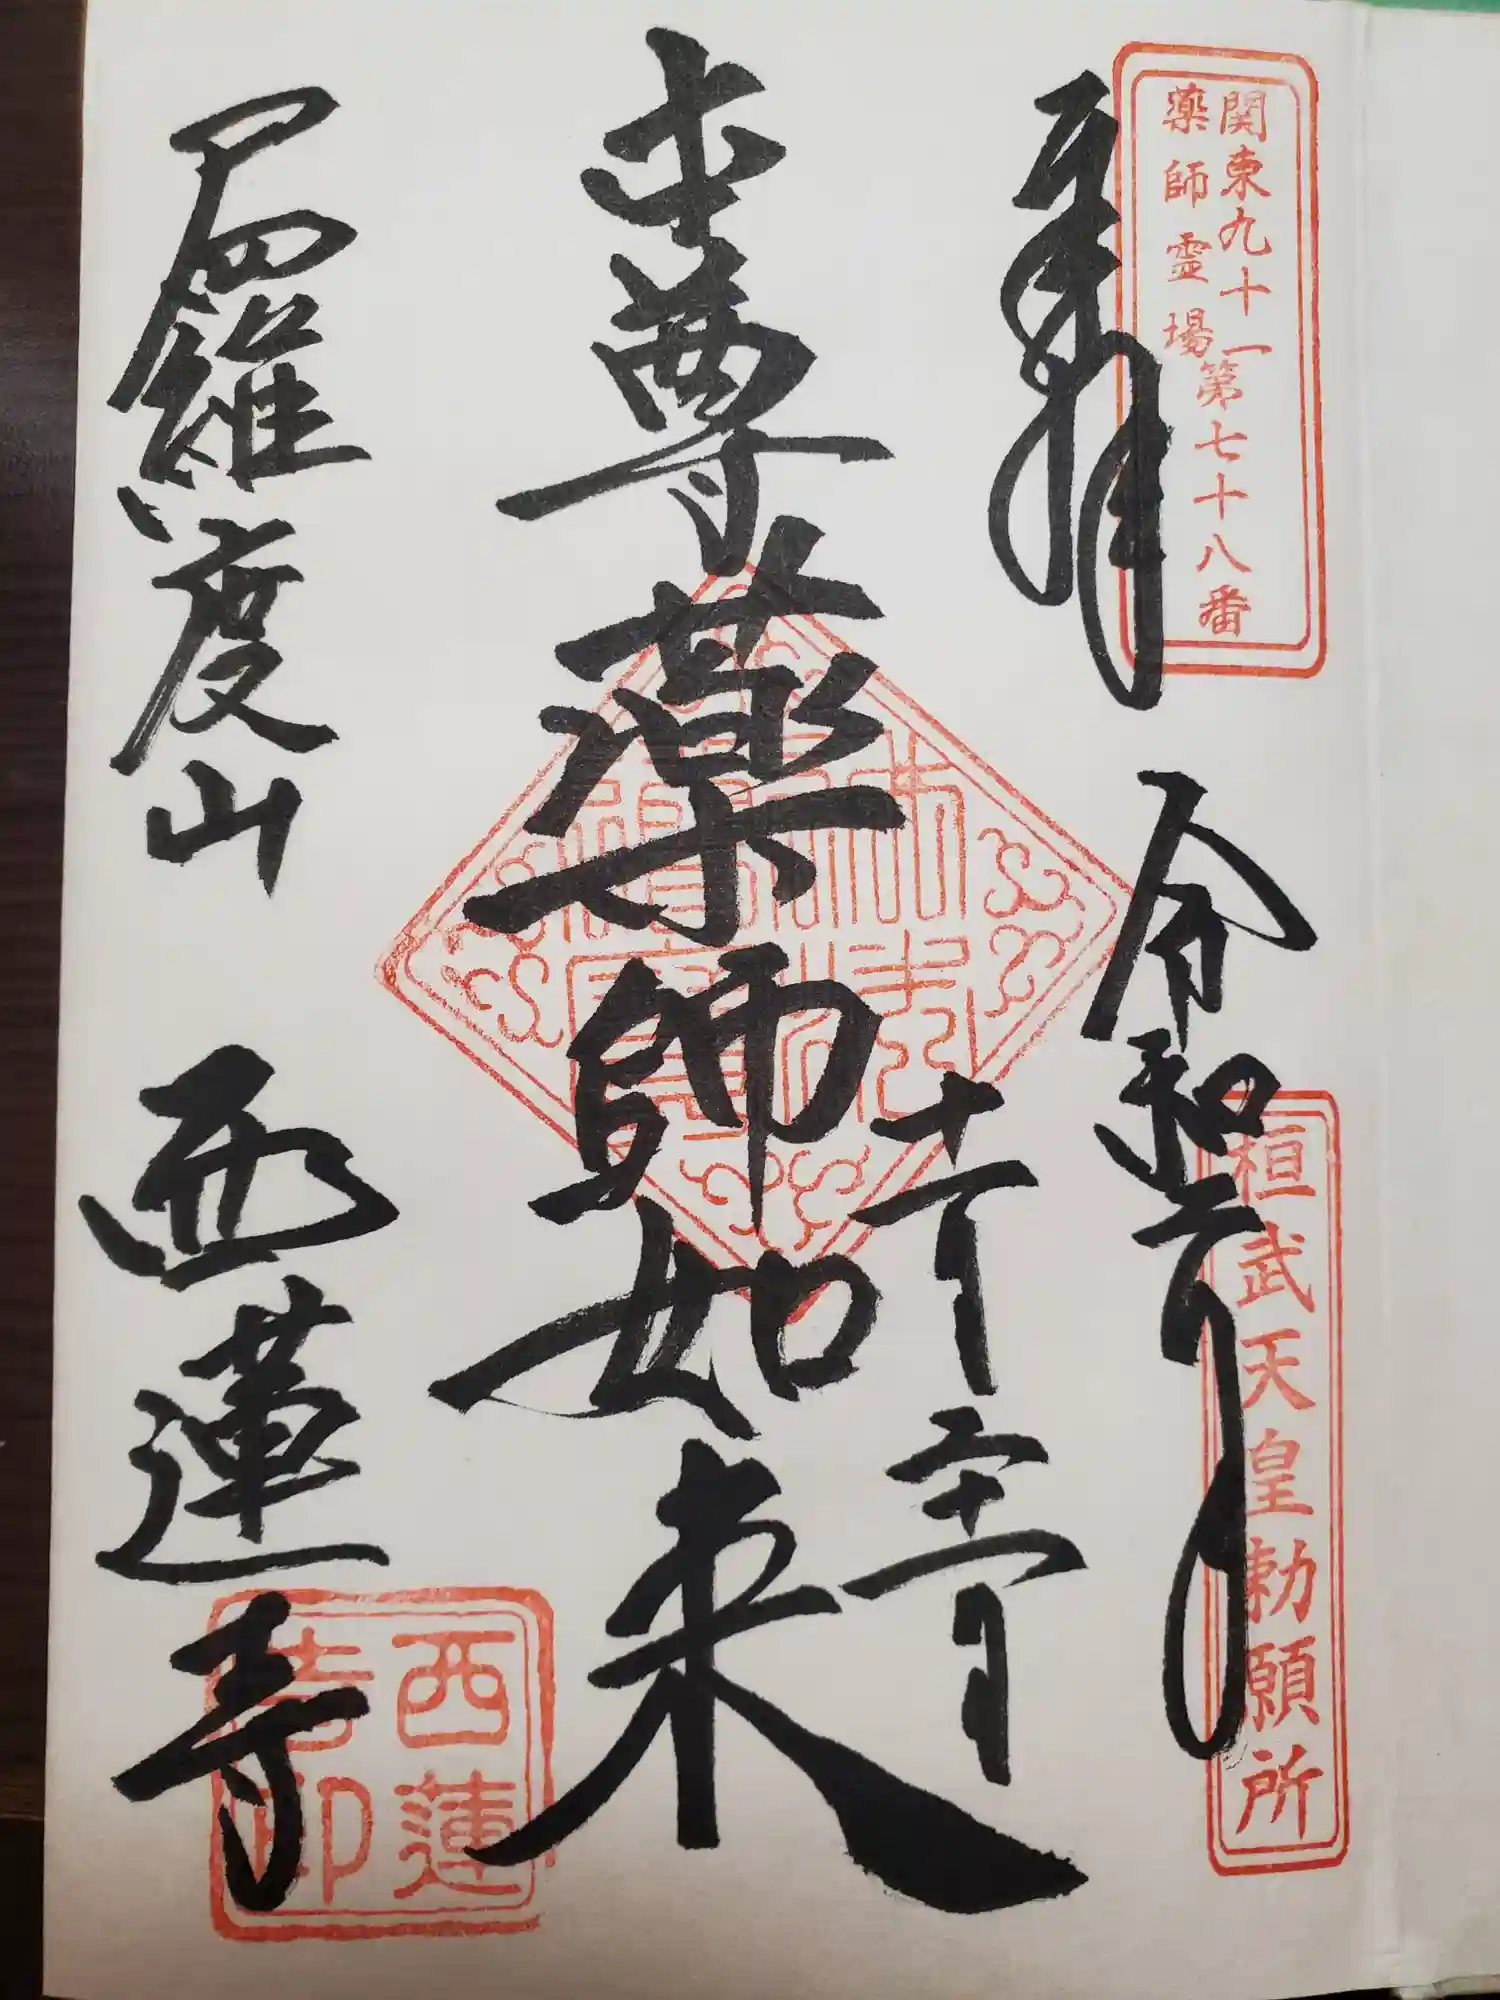 関東九十一
薬師霊場
第七十八番
奉拝
令和
桓武天皇勅願所
本尊薬師如来
尸羅度山 西蓮寺
西蓮
寺印